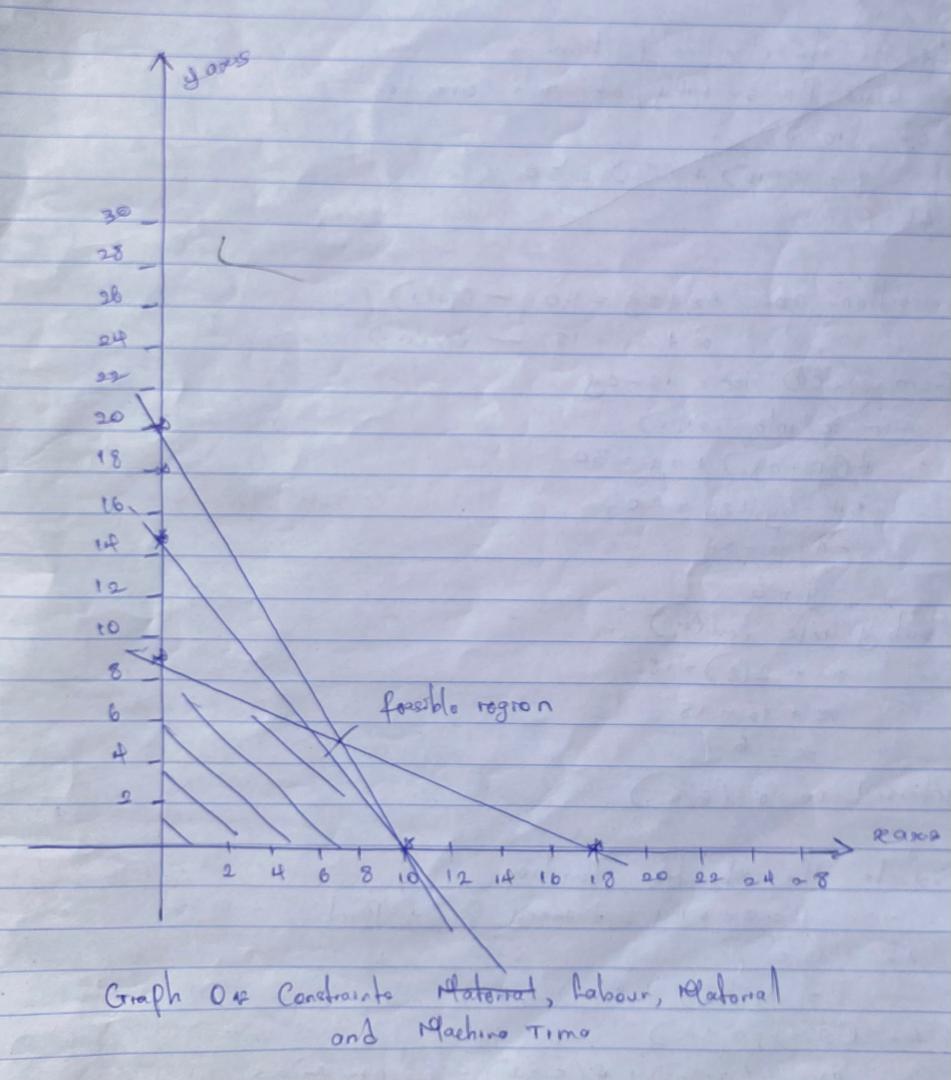 y axis
30
28
26
24
22
20
18
16
14
12
10
8
6
feasible region
4
2
x axis
2 4 6 8 10 12 14 16 18 20 22 24 28
Graph Of Constraints Material, Labour, Material
and Machine Time